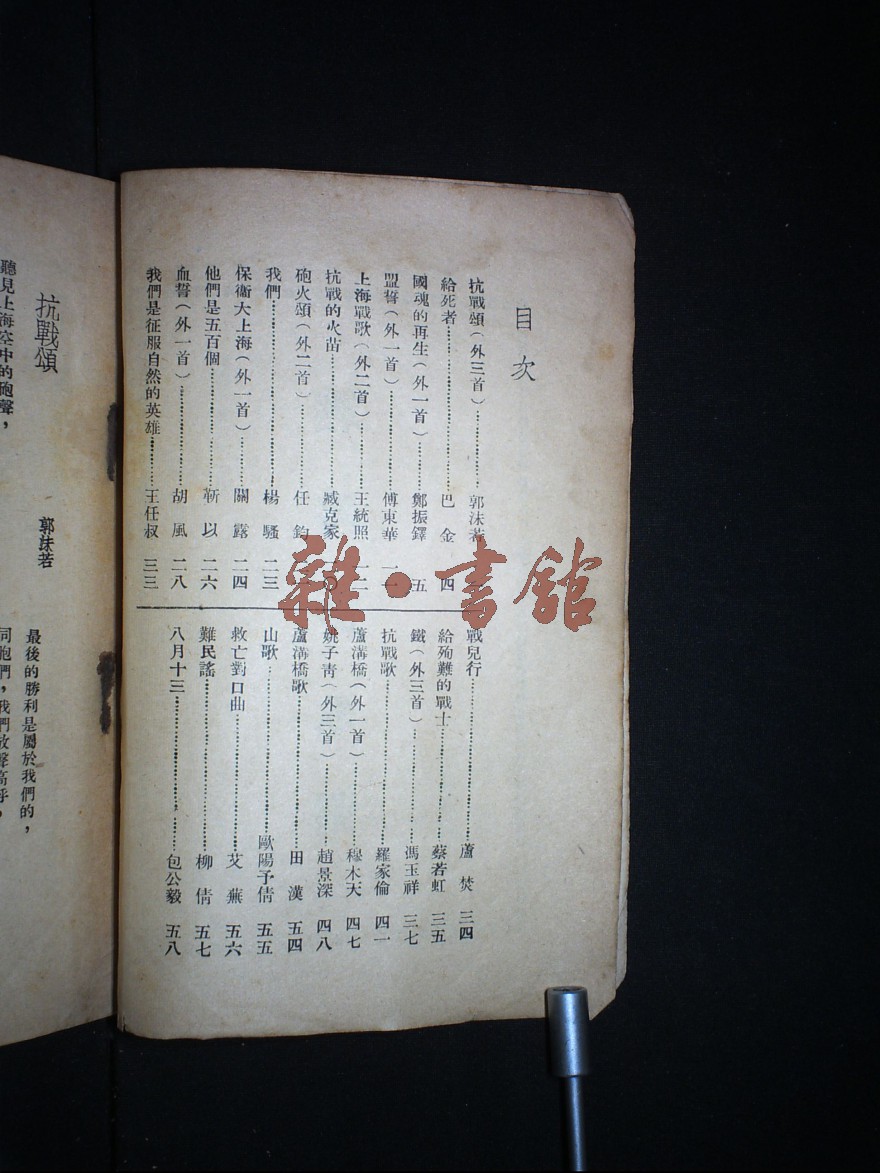 目次
抗戰頌(外三首)………郭沫若
給死者………巴金 四
國魂的再生(外一首)………鄭振鐸 五
盟誓(外一首)………傅東華 一一
上海戰歌(外二首)………王統照 一二
抗戰的火苗………臧克家
砲火頌(外二首)………任鈞
我們………楊騷 二三
保衞大上海(外一首)………關露 二四
他們是五百個………靳以 二六
血誓(外一首)………胡風 二八
我們是征服自然的英雄………王任叔 三三
戰兒行………蘆焚 三四
給殉難的戰士………蔡若虹 三五
鐵(外三首)………馮玉祥 三七
抗戰歌………羅家倫 四一
蘆溝橋(外一首)………穆木天 四七
姚子青(外三首)………趙景深 四八
蘆溝橋歌………田漢 五四
山歌………歐陽予倩 五五
救亡對口曲………艾蕪 五六
難民謠………柳倩 五七
八月十三………包公毅 五八
抗戰頌
郭沫若
聽見上海空中的砲聲,
最後的勝利是屬於我們的,
同胞們,我們放聲高呼,
雜·書館